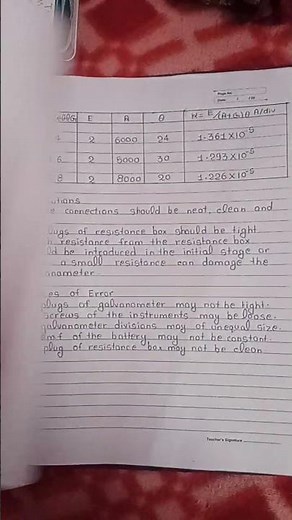 Page No.
Date
E R θ K = E/(R+G)θ A/div
2 6000 24 1.361×10⁻⁵
6 2 5000 30 1.293×10⁻⁵
8 2 8000 20 1.226×10⁻⁵
utions
connections should be neat, clean and
lugs of resistance box should be tight.
resistance from the resistance box
ld be introduced in the initial stage or
a small resistance can damage the
anometer
es of Error
plugs of galvanometer may not be tight.
screws of the instruments may be loose.
galvanometer divisions may of unequal size.
emf of the battery may not be constant.
plug of resistance box may not be clean.
Teacher's Signature